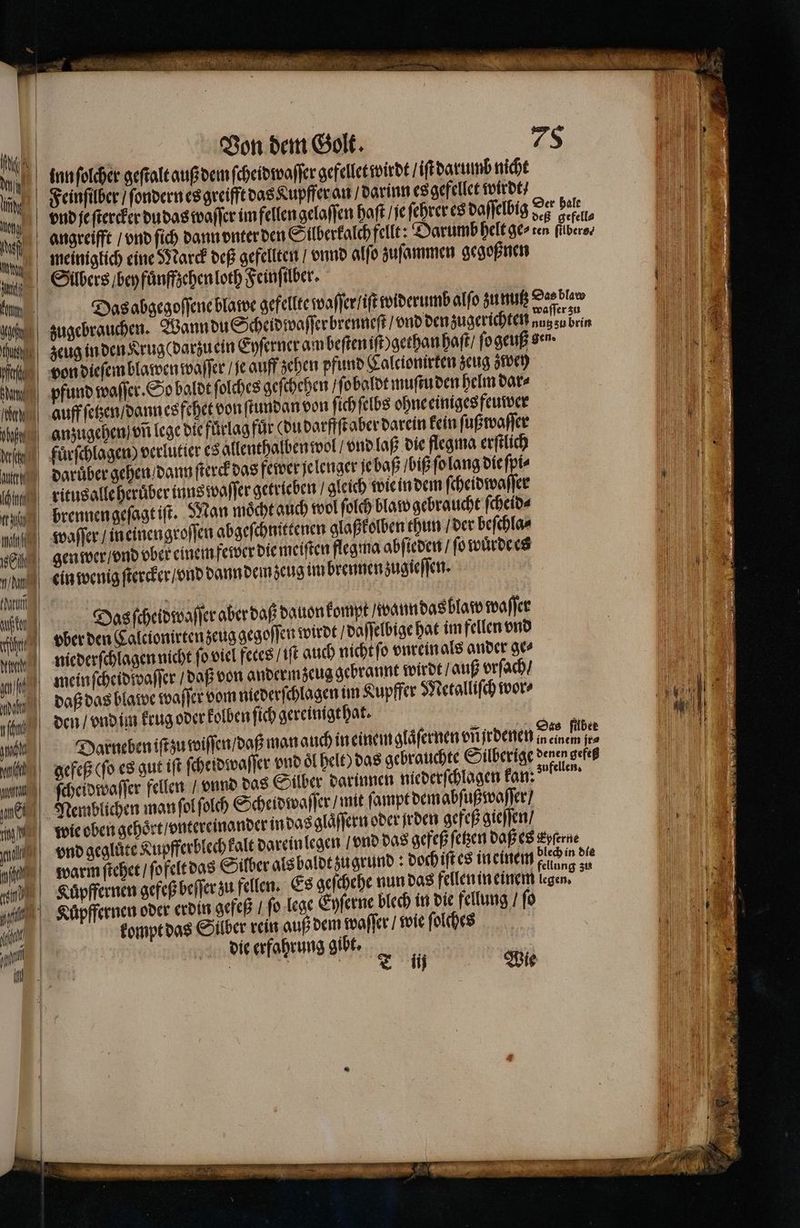 Von dem Golt. 75
inn solcher gestalt auß dem scheidwasser gefellet wirdt / ist darumb nicht
Feinsilber / sondern es greifft das Kupffer an / darinn es gefellet wirdt /
vnd je stercker du das wasser im fellen gelassen hast / je sehrer es dasselbig
angreifft / vnd sich dann vnter den Silberkalch fellt: Darumb helt ge⸗
meiniglich eine Marck deß gefellten / vnnd also zusammen gegoßnen
Silbers / bey fünffzehen loth Feinsilber.
Der halt
deß gefell⸗
ten silbers.
Das abgegossene blawe gefellte wasser / ist widerumb also zu nutz
zugebrauchen. Wann du Scheidwasser brennest / vnd den zugerichten
zeug in den Krug (darzu ein Eyserner am besten ist) gethan hast / so geuß
von diesem blawen wasser / je auff zehen pfund Calcionirten zeug zwey
pfund wasser. So baldt solches geschehen / so baldt mustu den helm dar⸗
auff setzen / dann es fehet von stundan von sich selbs ohne einiges feuwer
anzugehen) vñ lege die fürlag für (du darffst aber darein kein fußwasser
fürschlagen) verlutier es allenthalben wol / vnd laß die flegma erstlich
darüber gehen / dann sterck das fewer je lenger je baß / biß so lang die spi⸗
ritus alle herüber inns wasser getrieben / gleich wie in dem scheidwasser
brennen gesagt ist. Man möcht auch wol solch blaw gebraucht scheid⸗
wasser / in einen grossen abgeschnittenen glaßkolben thun / der beschla⸗
gen wer / vnd vber einem fewer die meisten flegma absieden / so würde es
ein wenig stercker / vnd dann dem zeug im brennen zugiessen.
Das blaw
wasser zu
nutz zu brin
gen.
Das scheidwasser aber daß dauon kompt / wann das blaw wasser
vber den Calcionirten zeug gegossen wirdt / dasselbige hat im fellen vnd
niederschlagen nicht so viel feces / ist auch nicht so vnrein als ander ge⸗
mein scheidwasser / daß von anderm zeug gebrannt wirdt / auß vrsach /
daß das blawe wasser vom niederschlagen im Kupffer Metallisch wor⸗
den / vnd im krug oder kolben sich gereinigt hat.
Darneben ist zu wissen / daß man auch in einem gläsernen vñ jrdenen
gefeß (so es gut ist scheidwasser vnd öl helt) das gebrauchte Silberige
scheidwasser fellen / vnnd das Silber darinnen niederschlagen kan:
Nemblichen man sol solch Scheidwasser / mit sampt dem absußwasser /
wie oben gehört / vntereinander in das glässern oder jrden gefeß giessen /
vnd geglüte Kupfferblech kalt darein legen / vnd das gefeß setzen daß es
warm stehet / so felt das Silber als baldt zu grund: doch ist es in einem
Küpffernen gefeß besser zu fellen. Es geschehe nun das fellen in einem
Küpffernen oder erdin gefeß / so lege Eyserne blech in die fellung / so
kompt das Silber rein auß dem wasser / wie solches
die erfahrung gibt.
Das silber
in einem jr⸗
denen gefeß
zufellen.
Eyserne
blech in die
fellung zu
legen.
T iij Wie